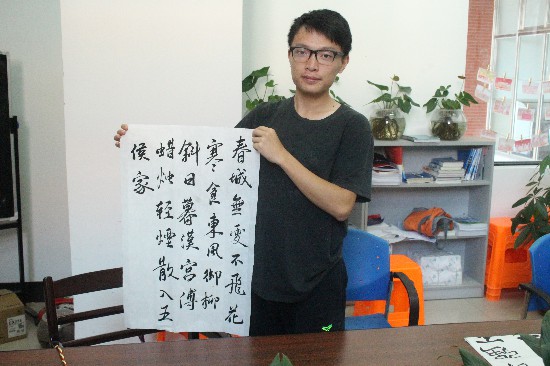 春城無處不飛花
寒食東風御柳
斜日暮漢宮傳
蜡烛輕煙散入五
侯家